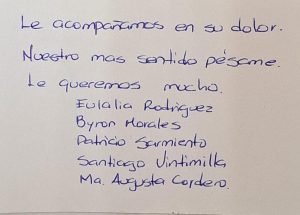 Le acompañamos en su dolor.
Nuestro mas sentido pésame.
Le queremos mucho.
Eulalia Rodriguez
Byron Morales
Patricio Sarmiento
Santiago Vintimilla
Ma. Augusta Cordero.